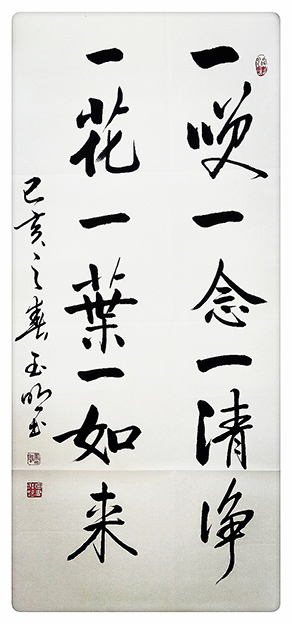 一咲一念一清净
一花一葉一如来
己亥之春玉明